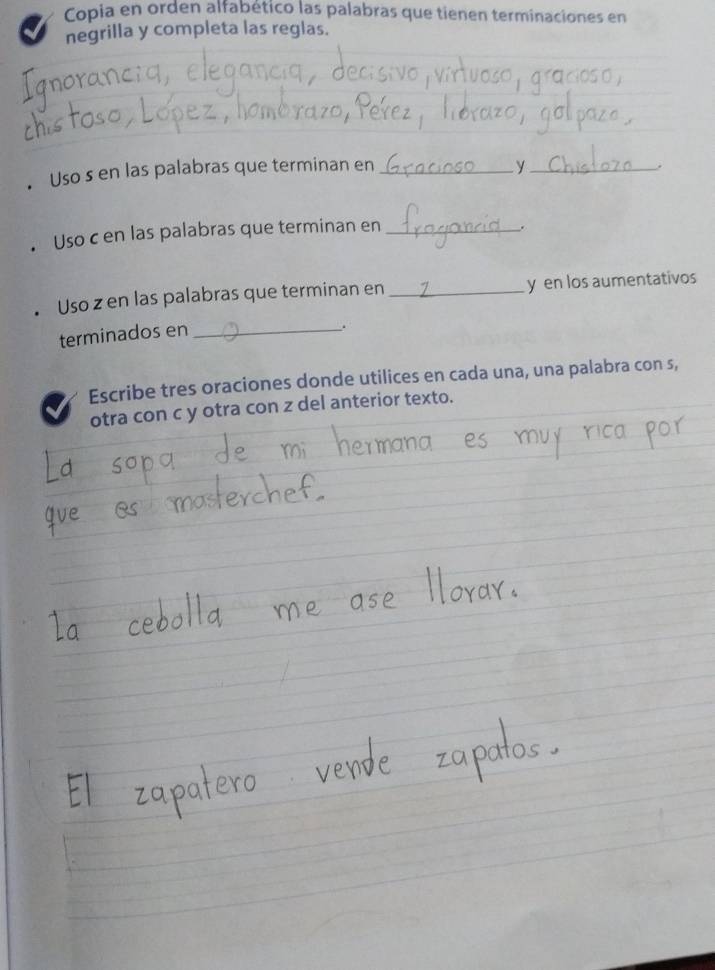 Copia en orden alfabético las palabras que tienen terminaciones en
negrilla y completa las reglas.
Ignorancia, elegancia, decisivo, virtuoso, gracioso,
chistoso, López, hombrazo, Pérez, librazo, golpazo,
• Uso s en las palabras que terminan en Gracioso y Chistozo.
• Uso c en las palabras que terminan en fragancia.
• Uso z en las palabras que terminan en z y en los aumentativos
terminados en O.
Escribe tres oraciones donde utilices en cada una, una palabra con s,
otra con c y otra con z del anterior texto.
La sopa de mi hermana es muy rica por
que es masterchef.
La cebolla me ase llorar.
El zapatero vende zapatos.